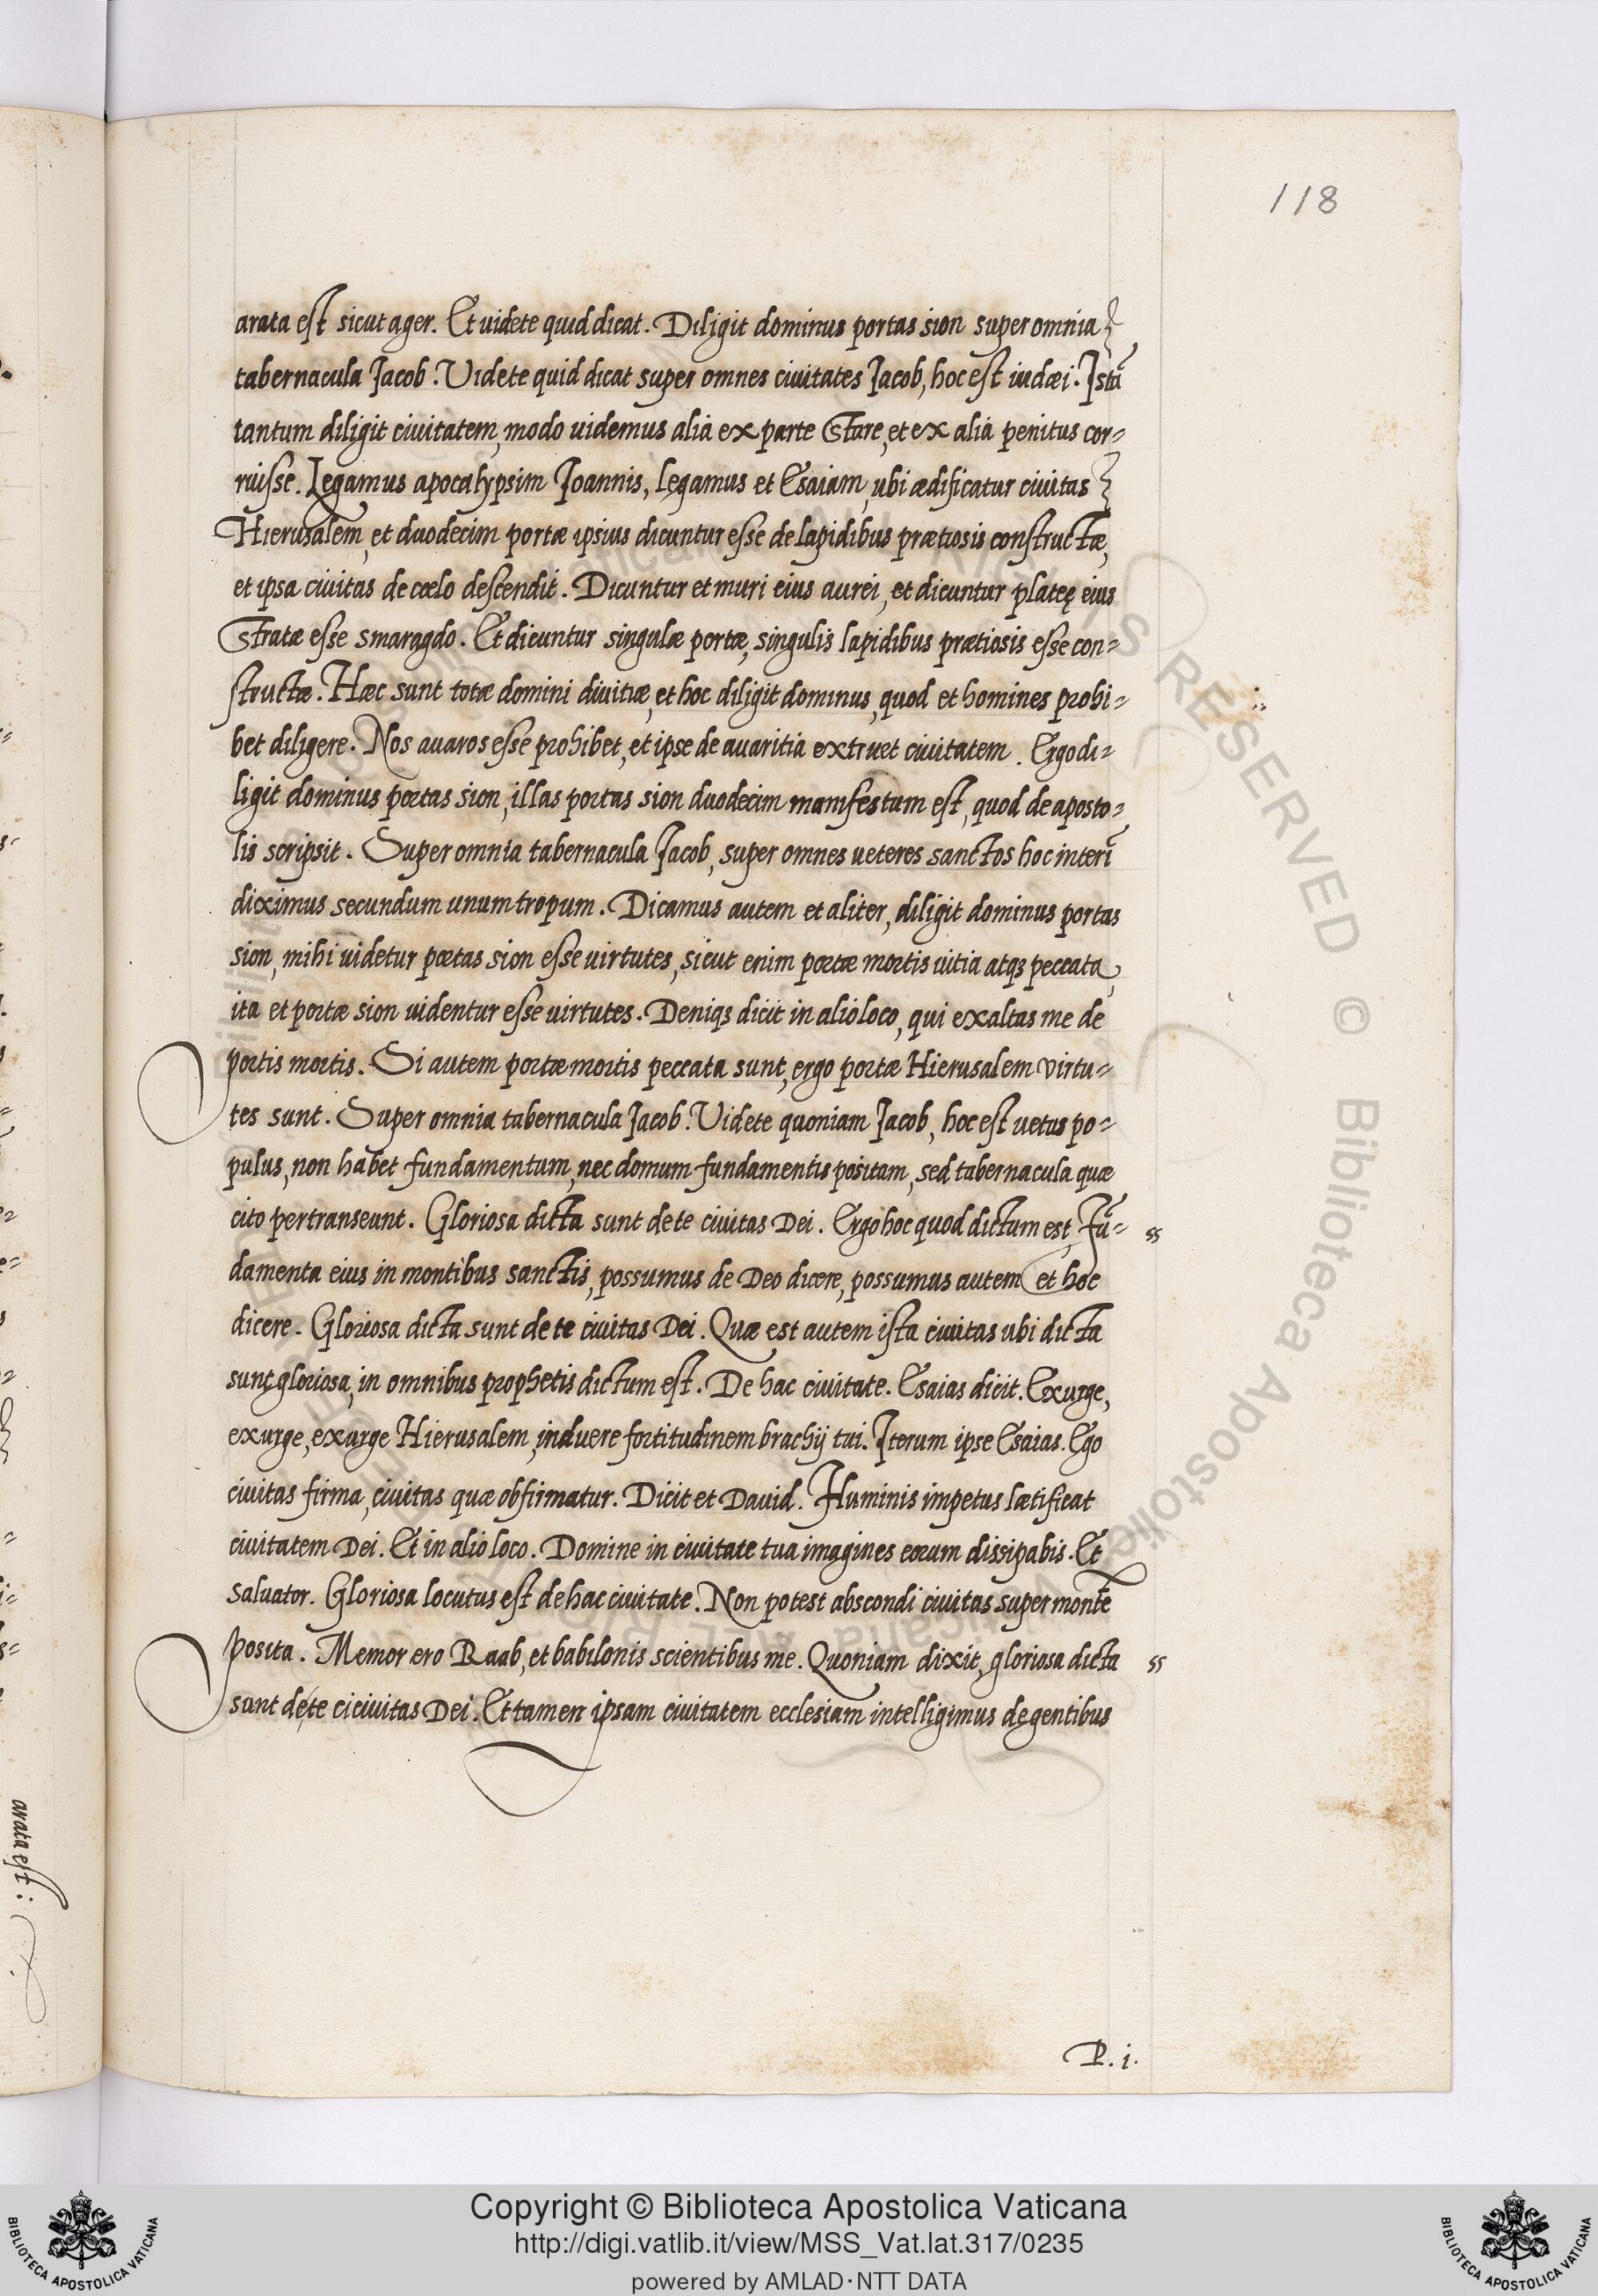 118
arata est sicut ager. Et uidete quid dicat. Diligit dominus portas sion super omnia
tabernacula Jacob. Uidete quid dicat super omnes ciuitates Jacob, hoc est iudæi. Istā
tantum diligit ciuitatem, modo uidemus alia ex parte stare, et ex alia penitus cor=
ruisse. Legamus apocalypsim Joannis, legamus et Esaiam, ubi ædificatur ciuitas
Hierusalem, et duodecim portæ ipsius dicuntur esse de lapidibus prætiosis constructæ,
et ipsa ciuitas de cœlo descendit. Dicuntur et muri eius aurei, et dicuntur plateę eius
stratæ esse smaragdo. Et dicuntur singulæ portæ, singulis lapidibus prætiosis esse con=
structæ. Hæc sunt totæ domini diuitiæ, et hoc diligit dominus, quod et homines prohi=
bet diligere. Nos auaros esse prohibet, et ipse de auaritia extruet ciuitatem. Ergo di=
ligit dominus portas sion, illas portas sion duodecim manifestum est, quod de aposto=
lis scripsit. Super omnia tabernacula Jacob, super omnes ueteres sanctos hoc interī
diximus secundum unum tropum. Dicamus autem et aliter, diligit dominus portas
sion, mihi uidetur poetas sion esse uirtutes, sicut enim portæ mortis uitia atqȝ peccata,
ita et portæ sion uidentur esse uirtutes. Deniqȝ dicit in alio loco, qui exaltas me de
portis mortis. Si autem portæ mortis peccata sunt, ergo portæ Hierusalem virtu=
tes sunt. Super omnia tabernacula Jacob. Uidete quoniam Jacob, hoc est uetus po=
pulus, non habet fundamentum, nec domum fundamentis positam, sed tabernacula quæ
cito pertranseunt. Gloriosa dicta sunt de te ciuitas Dei. Ergo hoc quod dictum est, Fū= ss
damenta eius in montibus sanctis, possumus de Deo dicere, possumus autem et hoc
dicere. Gloriosa dicta sunt de te ciuitas Dei. Quæ est autem ista ciuitas ubi dicta
sunt gloriosa, in omnibus prophetis dictum est. De hac ciuitate. Esaias dicit. Exurge,
exurge, exurge Hierusalem, induere fortitudinem brachij tui. Iterum ipse Esaias. Ego
ciuitas firma, ciuitas quæ obfirmatur. Dicit et Dauid. Fluminis impetus lætificat
ciuitatem Dei. Et in alio loco. Domine in ciuitate tua imagines eorum dissipabis. Et
saluator. Gloriosa locutus est de hac ciuitate. Non potest abscondi ciuitas super monte
posita. Memor ero Raab, et babilonis scientibus me. Quoniam dixit, gloriosa dicta ss
sunt de te ciciuitas Dei. Et tamen ipsam ciuitatem ecclesiam intelligimus de gentibus
P. i.
arata est:
Copyright © Biblioteca Apostolica Vaticana
http://digi.vatlib.it/view/MSS_Vat.lat.317/0235
powered by AMLAD·NTT DATA
BIBLIOTECA APOSTOLICA VATICANA
BIBLIOTECA APOSTOLICA VATICANA